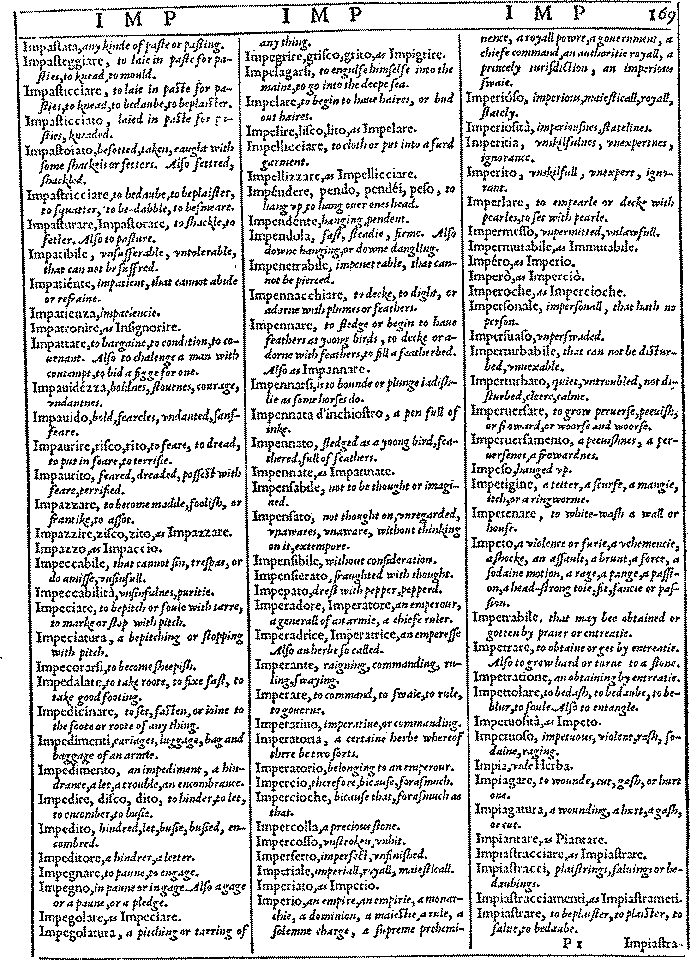 I M P
I M P
I M P
169
Impastata, any kinde of paste or pasting.
Impasteggiare, to laie in paste for pa-
sties, to knead, to mould.
Impasticciare, to laie in paste for pa-
sties, to knead, to bedaube, to beplaister.
Impasticciato, laied in paste for pa-
sties, kneaded.
Impastoiato, besotted, taken, caught with
some shackels or fetters. Also fettred,
shackled.
Impastricciare, to bedaube, to beplaister,
to squatter, to be-dabble, to besmeare.
Impasturare, Impastorare, to shackle, to
fetter. Also to pasture.
Impatibile, vnsufferable, vntolerable,
that can not be suffred.
Impatiénte, impatient, that cannot abide
or refraine.
Impatienza, impatiencie.
Impatronire, as Insignorire.
Impattare, to bargaine, to condition, to co-
uenant. Also to chalenge a man with
contempt, to bid a figge for one.
Impauidézza, boldnes, stoutnes, courage,
vndantnes.
Impauido, bold, fearcles, vndanted, sans-
feare.
Impaurire, risco, rito, to feare, to dread,
to put in feare, to terrifie.
Impaurito, feared, dreaded, possest with
feare, terrified.
Impazzare, to become madde, foolish, or
frantike, to assot.
Impazzire, zisco, zito, as Impazzare.
Impazzo, as Impaccio.
Impeccabile, that cannot sin, trespas, or
do amisse, vnsinfull.
Impeccabilità, vnsinfulnes, puritie.
Impeciare, to bepitch or soule with tarre,
to marke or stop with pitch.
Impeciatura, a bepitching or stopping
with pitch.
Impecorarsi, to become sheepish.
Impedalare, to take roote, to fixe fast, to
take good footing.
Impedicinare, to set, fasten, or ioine to
the foote or roote of any thing.
Impedimenti, cariages, luggage, bag and
baggage of an armie.
Impedimento, an impediment, a hin-
drance, a let, a trouble, an encombrance.
Impedire, disco, dito, to hinder, to let,
to encomber, to busie.
Impedito, hindred, let, busie, busied, en-
combred.
Impeditore, a hindrer, a letter.
Impegnare, to pawne, to engage.
Impegno, in pawne or ingage. Also a gage
or a pawne, or a pledge.
Impegolare, as Impeciare.
Impegolatura, a pitching or tarring of
any thing.
Impegrire, grisco, grito, as Impigrire.
Impelagarsi, to engulfe himselfe into the
maine, to go into the deepe sea.
Impelare, to begin to haue haires, or bud
out haires.
Impelire, lisco, lito, as Impelare.
Impellicciare, to cloth or put into a furd
garment.
Impellizzare, as Impellicciare.
Impéndere, pendo, pendéi, peso, to
hang vp, to hang ouer ones head.
Impendénte, hanging, pendent.
Impendola, fast, steadie, firme. Also
downe hanging, or downe dangling.
Impenetrabile, impenetrable, that can-
not be pierced.
Impennacchiare, to decke, to dight, or
adorne with plumes or feathers.
Impennare, to fledge or begin to haue
feathers as young birds, to decke or a-
dorne with feathers, to fill a featherbed.
Also as Impannare.
Impennarsi, is to bounde or plunge
lie as some horses do.
Impennata d'inchiostro, a pen full of
inke.
Impennato, fledged as a yoong bird, fea-
thered, full of feathers.
Impennate, as Impannate.
Impensabile, not to be thought or imagi-
ned.
Impensato, not thought on, vnregarded,
vnawares, vnaware, without thinking
on it, extempore.
Impensibile, without consideration.
Impensierato, fraughted with thought.
Impepato, drest with pepper, pepperd.
Imperadore, Imperatore, an emperour,
a generall of an armie, a chiefe ruler.
Imperadrice, Imperatrice, an emperesse
Also an herbe so called.
Imperante, raigning, commanding, ru-
ling, swaying.
Imperare, to command, to swaie, to rule,
to gouerne.
Imperatiuo, imperatiue, or commanding.
Imperatoria, a certaine herbe whereof
there be two sorts.
Imperatorio, belonging to an emperour.
Impercio, therefore, bicause, forasmuch.
Impercioche, bicause that, forasmuch as
that.
Impercolla, a precious stone.
Impercosso, vnstroken, vnhit.
Imperfetto, imperfect, vnfinished.
Imperiale, imperiall, royall, maiesticall.
Imperiato, as Imperio.
Imperio, an empire, an empirie, a monar-
chie, a dominion, a maiestie, a rule, a
solemne charge, a supreme prehemi-
nence, a royall powre, a gouernment, a
chiefe command, an authoritie royall, a
princely iurisdiction, an imperious
swaie.
Imperióso, imperious, maiesticall, royall,
stately.
Imperiosità, imperiousnes, statelines.
Imperitia, vnskilfulnes, vnexpertnes,
ignorance.
Imperito, vnskilfull, vnexpert, igno-
rant.
Imperlare, to empearle or decke with
pearles, to set with pearle.
Impermesso, vnpermitted, vnlawfull.
Impermutabile, as Immutabile.
Impéro, as Imperio.
Imperò, as Imperciò.
Imperoche, as Impercioche.
Impersonale, impersonall, that hath no
person.
Impersuaso, vnperswaded.
Imperturbabile, that can not be distur-
bed, vnuexable.
Imperturbato, quiet, vntroubled, not di-
sturbed, cleere, calme.
Imperuersare, to grow peruerse, peeuish,
or froward, or woorse and woorse.
Imperuersamento, a peeuishnes, a per-
uersenes, a frowardnes.
Impeso, hanged vp.
Impetigine, a tetter, a scurfe, a mangie,
itch, or a ringworme.
Impetenare, to white-wash a wall or
house.
Impeto, a violence or furie, a vehemencie,
a shocke, an assault, a brunt, a force, a
sodaine motion, a rage, a pange, a passi-
on, a head-strong toie, fit, fancie or pas-
sion.
Impetrabile, that may bee obtained or
gotten by praier or entreatie.
Impetrare, to obtaine or get by entreatie.
Also to grow hard or turne to a stone.
Impetratione, an obtaining by entreatie.
Impettolare, to bedash, to bedaube, to be-
blur, to soule. Also to entangle.
Impetuosità, as Impeto.
Impetuoso, impetuous, violent, rash, so-
daine, raging.
Impia, vide Herba.
Impiagare, to wounde, cut, gash, or hurt
one.
Impiagatura, a wounding, a hurt, a gash,
or cut.
Impiantare, as Piantare.
Impiastracciare, as Impiastrare.
Impiastracci, plaistrings, saluings or be-
daubings.
Impiastracciamenti, as Impiastramenti.
Impiastrare, to beplaister, to plaister, to
salue, to bedaube.
P 1
Impiastra-